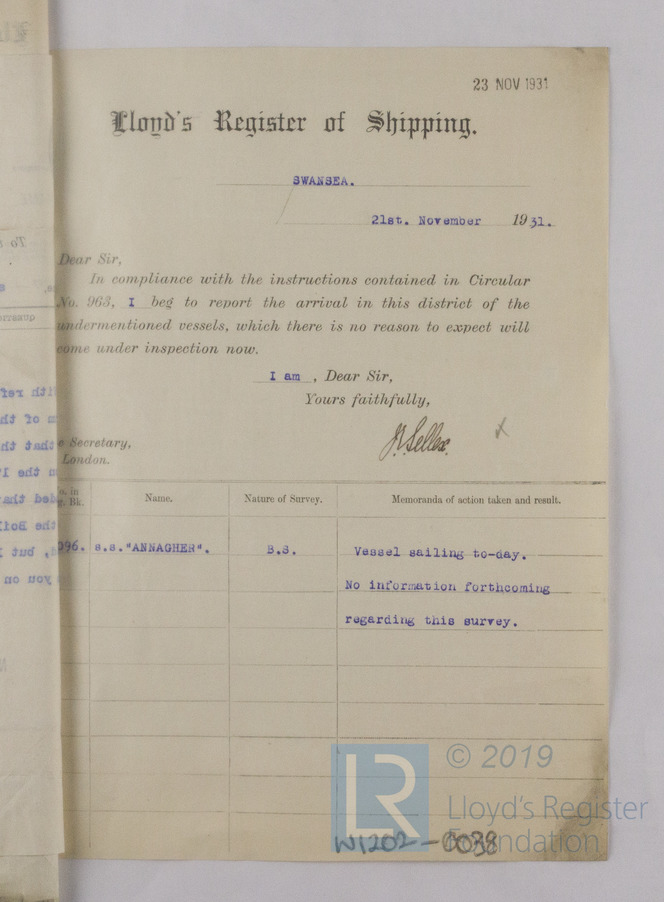 23 NOV 1931
Lloyd's Register of Shipping.
SWANSEA.
21st. November 1931.
Dear Sir,
In compliance with the instructions contained in Circular
No. 963, I beg to report the arrival in this district of the
undermentioned vessels, which there is no reason to expect will
come under inspection now.
I am, Dear Sir,
Yours faithfully,
Secretary,
London.
in Bk. Name. Nature of Survey. Memoranda of action taken and result.
096. s.s."ANNAGHER". B.S. Vessel sailing to-day.
No information forthcoming
regarding this survey.
LR © 2019
Lloyd's Register
Foundation
W1202-0038